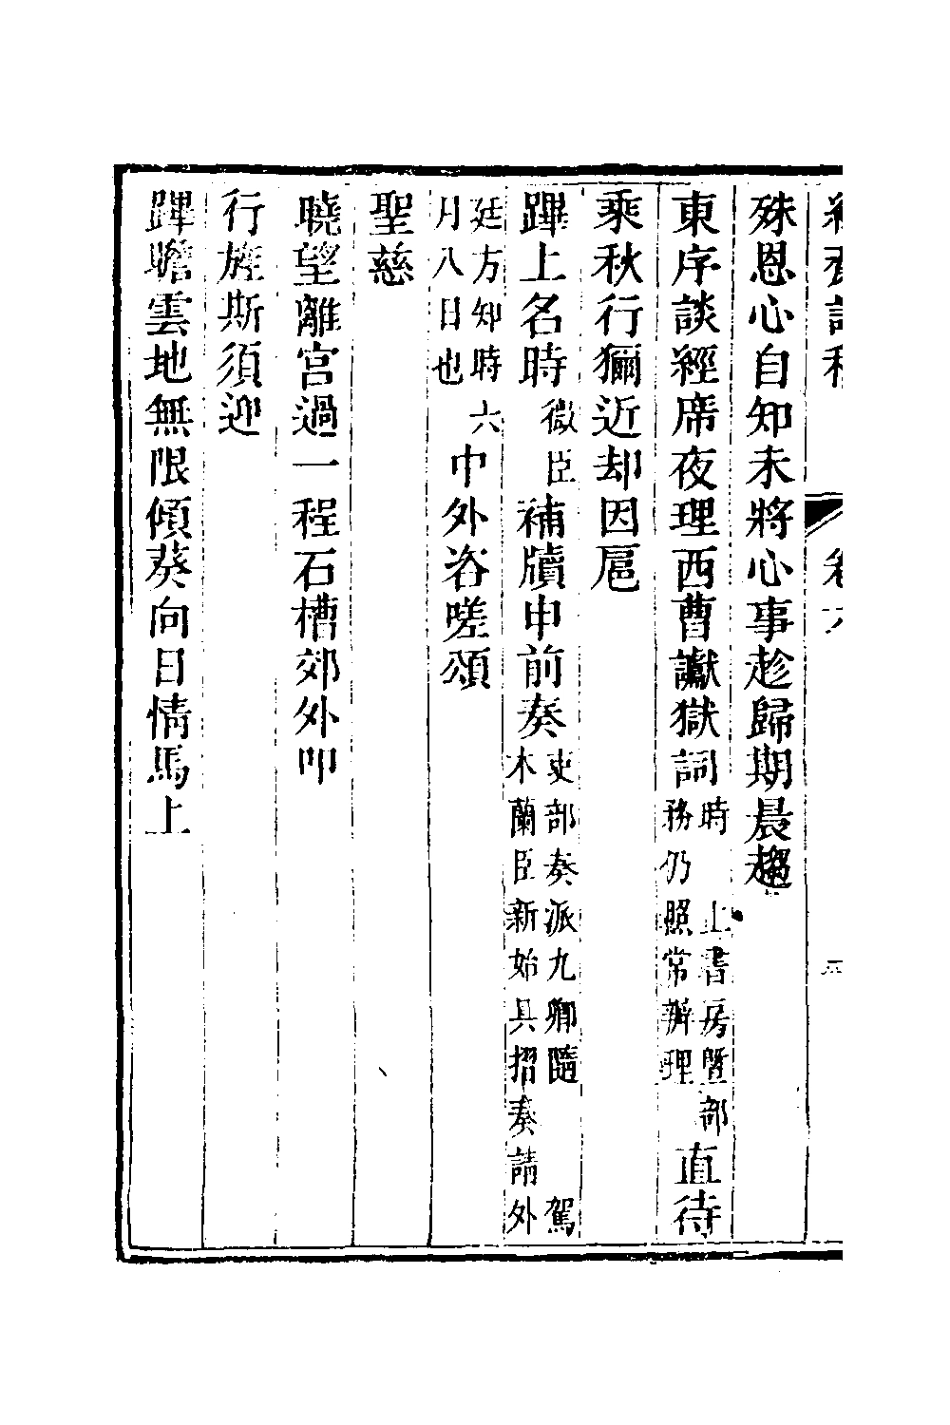 殊恩心自知未將心事趁歸期晨趨
東序談經席夜理西曹讞獄詞時　上書房暨部務仍照常辦理直待
乘秋行獮近却因扈
蹕上名時微臣補牘申前奏吏部奏派九卿隨　駕木蘭臣新始具摺奏請外
廷方知時六月八日也中外咨嗟頌
聖慈
曉望離宮過一程石槽郊外叩
行旌斯須迎
蹕瞻雲地無限傾葵向日情馬上